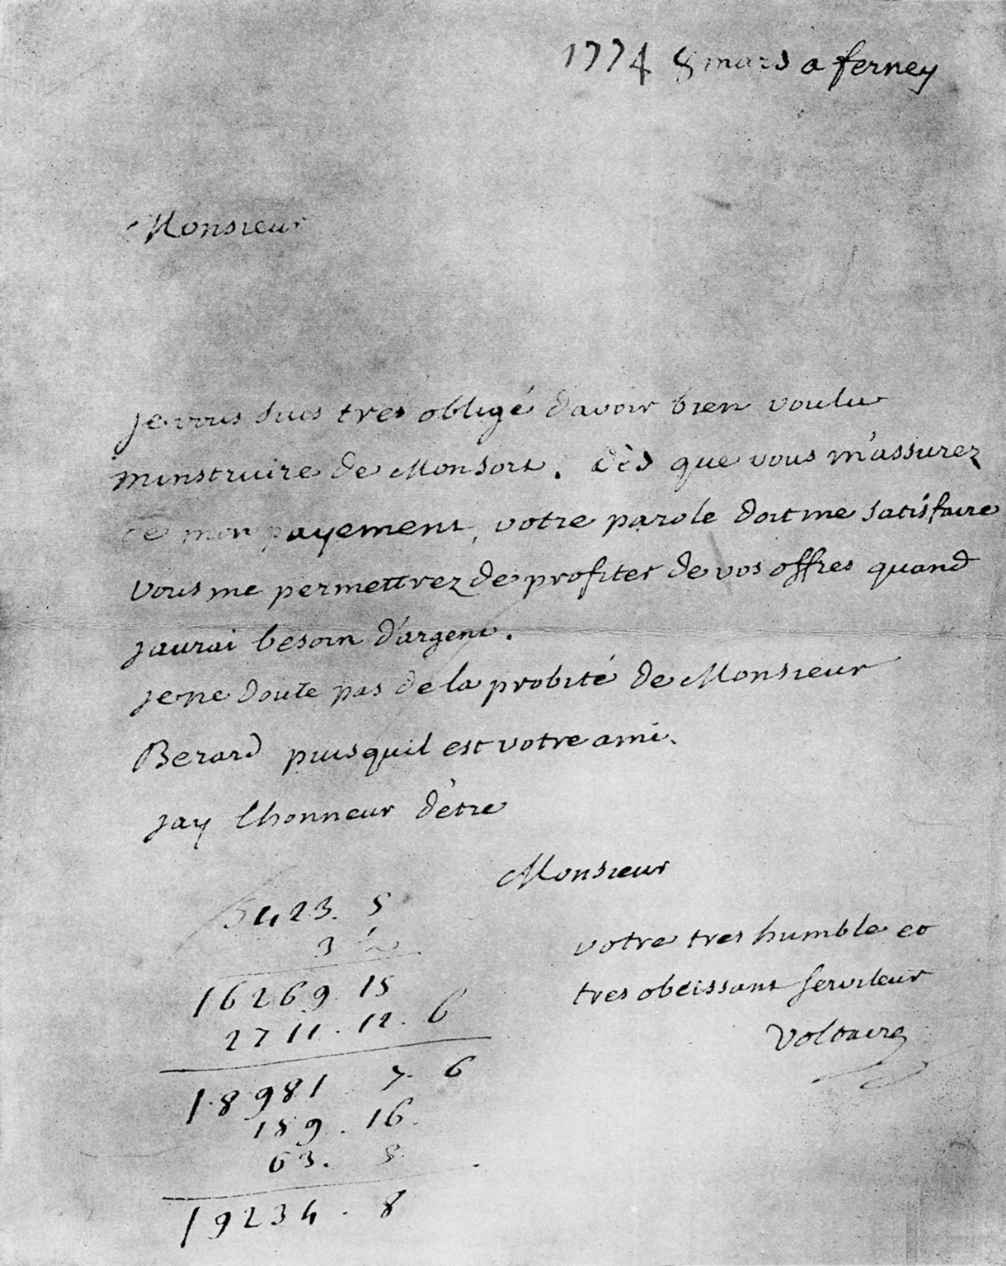 1774 8 mars a ferney
Monsieur
je vous suis tres obligé d'avoir bien voulu
minstruire de Mon sort. dès que vous m'assurez
de mon payement, votre parole doit me satisfaire
Vous me permettrez de profiter de vos offres quand
jaurai besoin d'argent.
je ne doute pas de la probité de Monsieur
Berard puisquil est votre ami.
jay lhonneur d'etre
Monsieur
votre tres humble et
tres obeissant serviteur
Voltaire
5423. 5
3 ½
16269 15
2711. 12. 6
18981 7. 6
189. 16.
63. 8
19234. 8